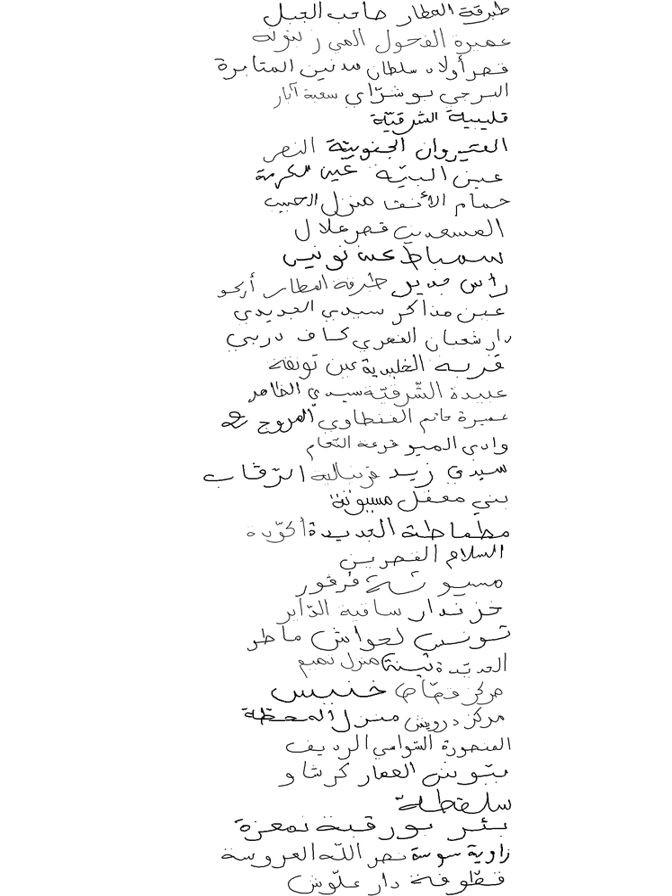 طبرقة المطار صاحب الجبل
عميرة الفحول الميزرنوية
قصر أولاد سلطان مدنين المتابرة
البرجي بوشراي سعية آبار
قليبية الشرقيّة
القيروان الجنوبية النصر
عين البيّة عين الكرمة
حمام الأنف منزل الحبيب
المسعدين قصر علال
سمباط عين تونس
راس جدير طبرقة المطار أركو
عين مذاكر سيدي الجديدي
دار شعبان الفهري كاف دربي
قرية الخليدية عين تونقة
عبيدة الشّرقيّة سيدي الظاهر
عميرة حاتم القنطاوي المروج 2
وادي الميو فرعة النعام
سيدي زيد فرنانة الرّقاب
بني معقل مسيوتة
مطماطة الجديدة أكوّدة
السلام القصرين
مسيوتة قرقور
خزندار ساقية الدّاير
تونس لعواش ماطر
الجديّدة ثينة منزل تميم
مركز قمّاص خنيس
مركز درويش منزل المحطة
المنصورة الشوامي الرديف
بتوين العمار كرشاو
سلقطة
بئر بورقبة نمعزة
زاوية سوسة نصر اللّه العروسة
قطوفة دار علّوش